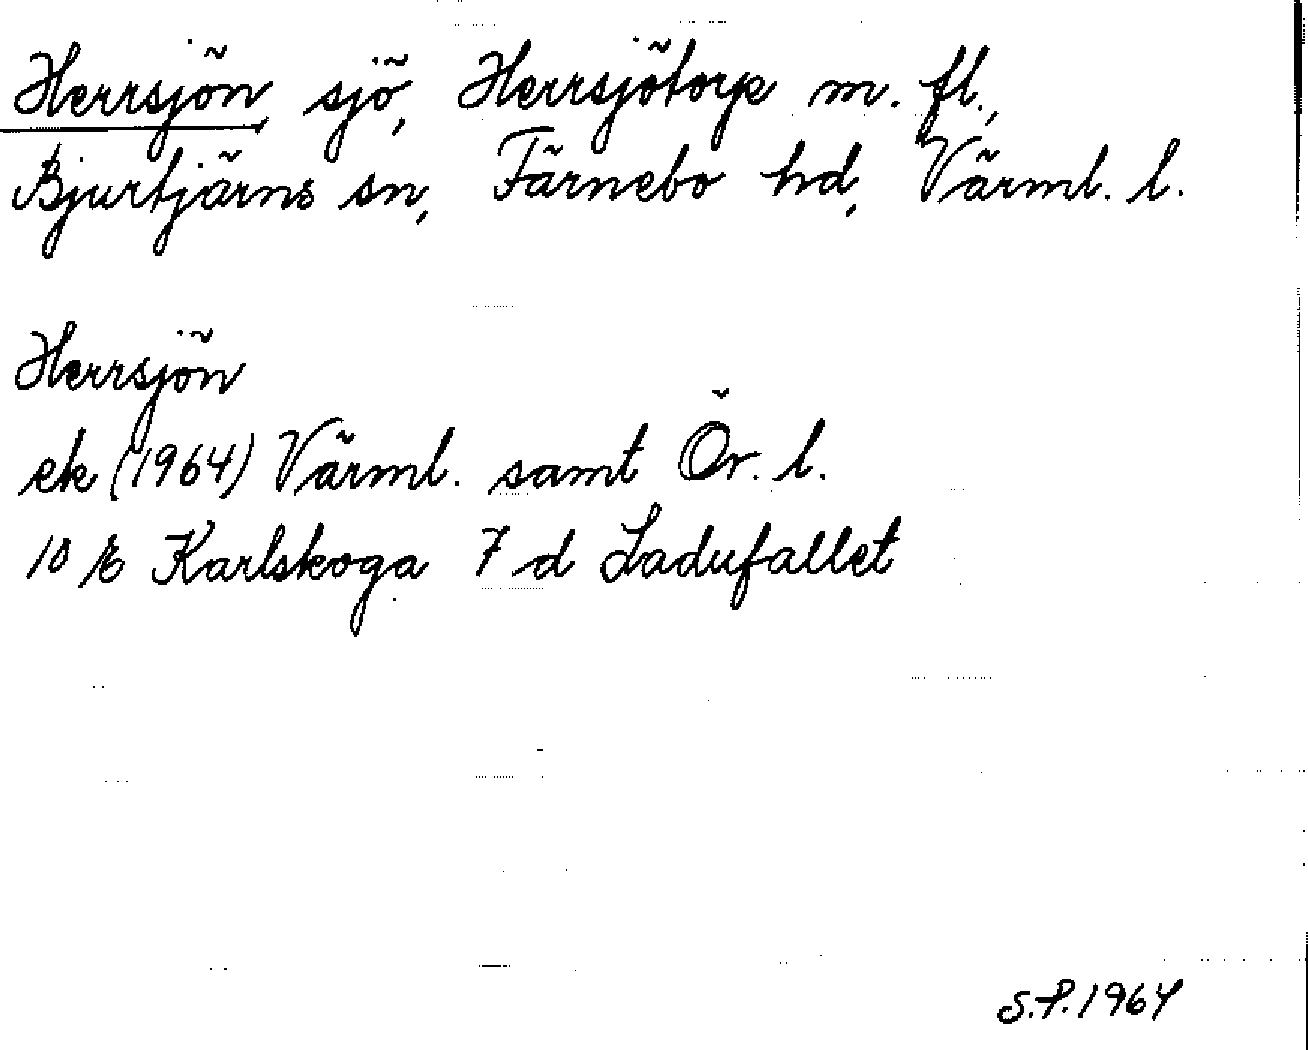 Herrsjön, sjö, Herrsjötorp m. fl.,
Bjurtjärns sn, Färnebo hd, Värml. l.
Herrsjön
ek (1964) Värml. samt Ör. l.
10 E Karlskoga 7 d Ladufallet
S.P. 1964